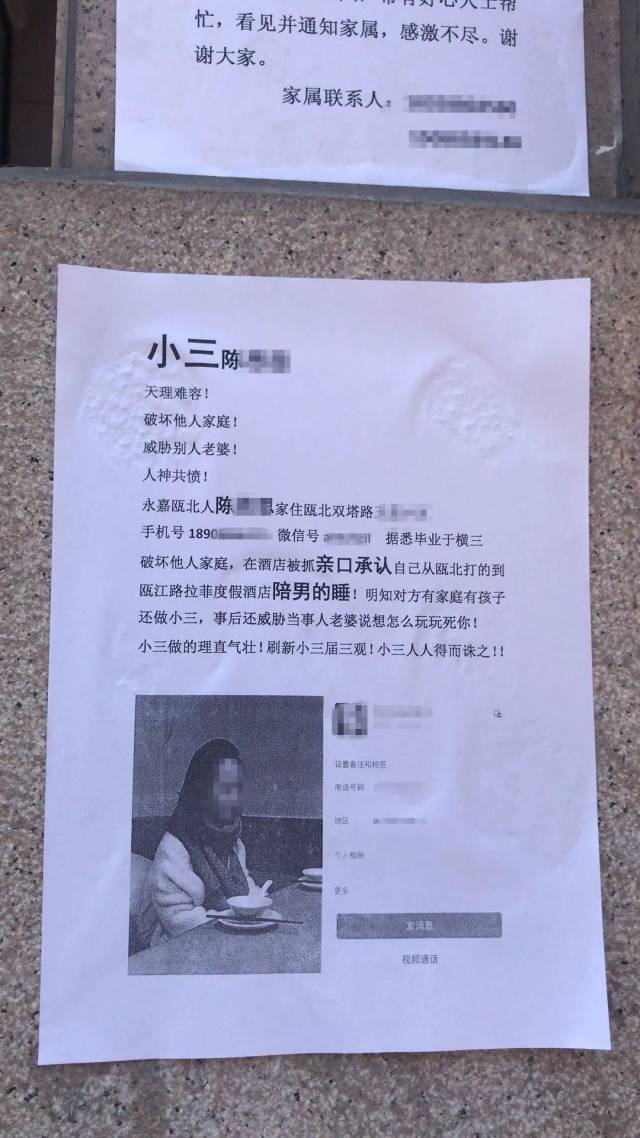 忙，看见并通知家属，感激不尽。谢
谢大家。
家属联系人：
小三陈
天理难容！
破坏他人家庭！
威胁别人老婆！
人神共愤！
永嘉瓯北人陈 家住瓯北双塔路
手机号 1890 微信号 a 据悉毕业于横三
破坏他人家庭，在酒店被抓亲口承认自己从瓯北打的到
瓯江路拉菲度假酒店陪男的睡！明知对方有家庭有孩子
还做小三，事后还威胁当事人老婆说想怎么玩玩死你！
小三做的理直气壮！刷新小三届三观！小三人人得而诛之！！
设置备注和标签
电话号码
地区
个人相册
更多
发消息
视频通话